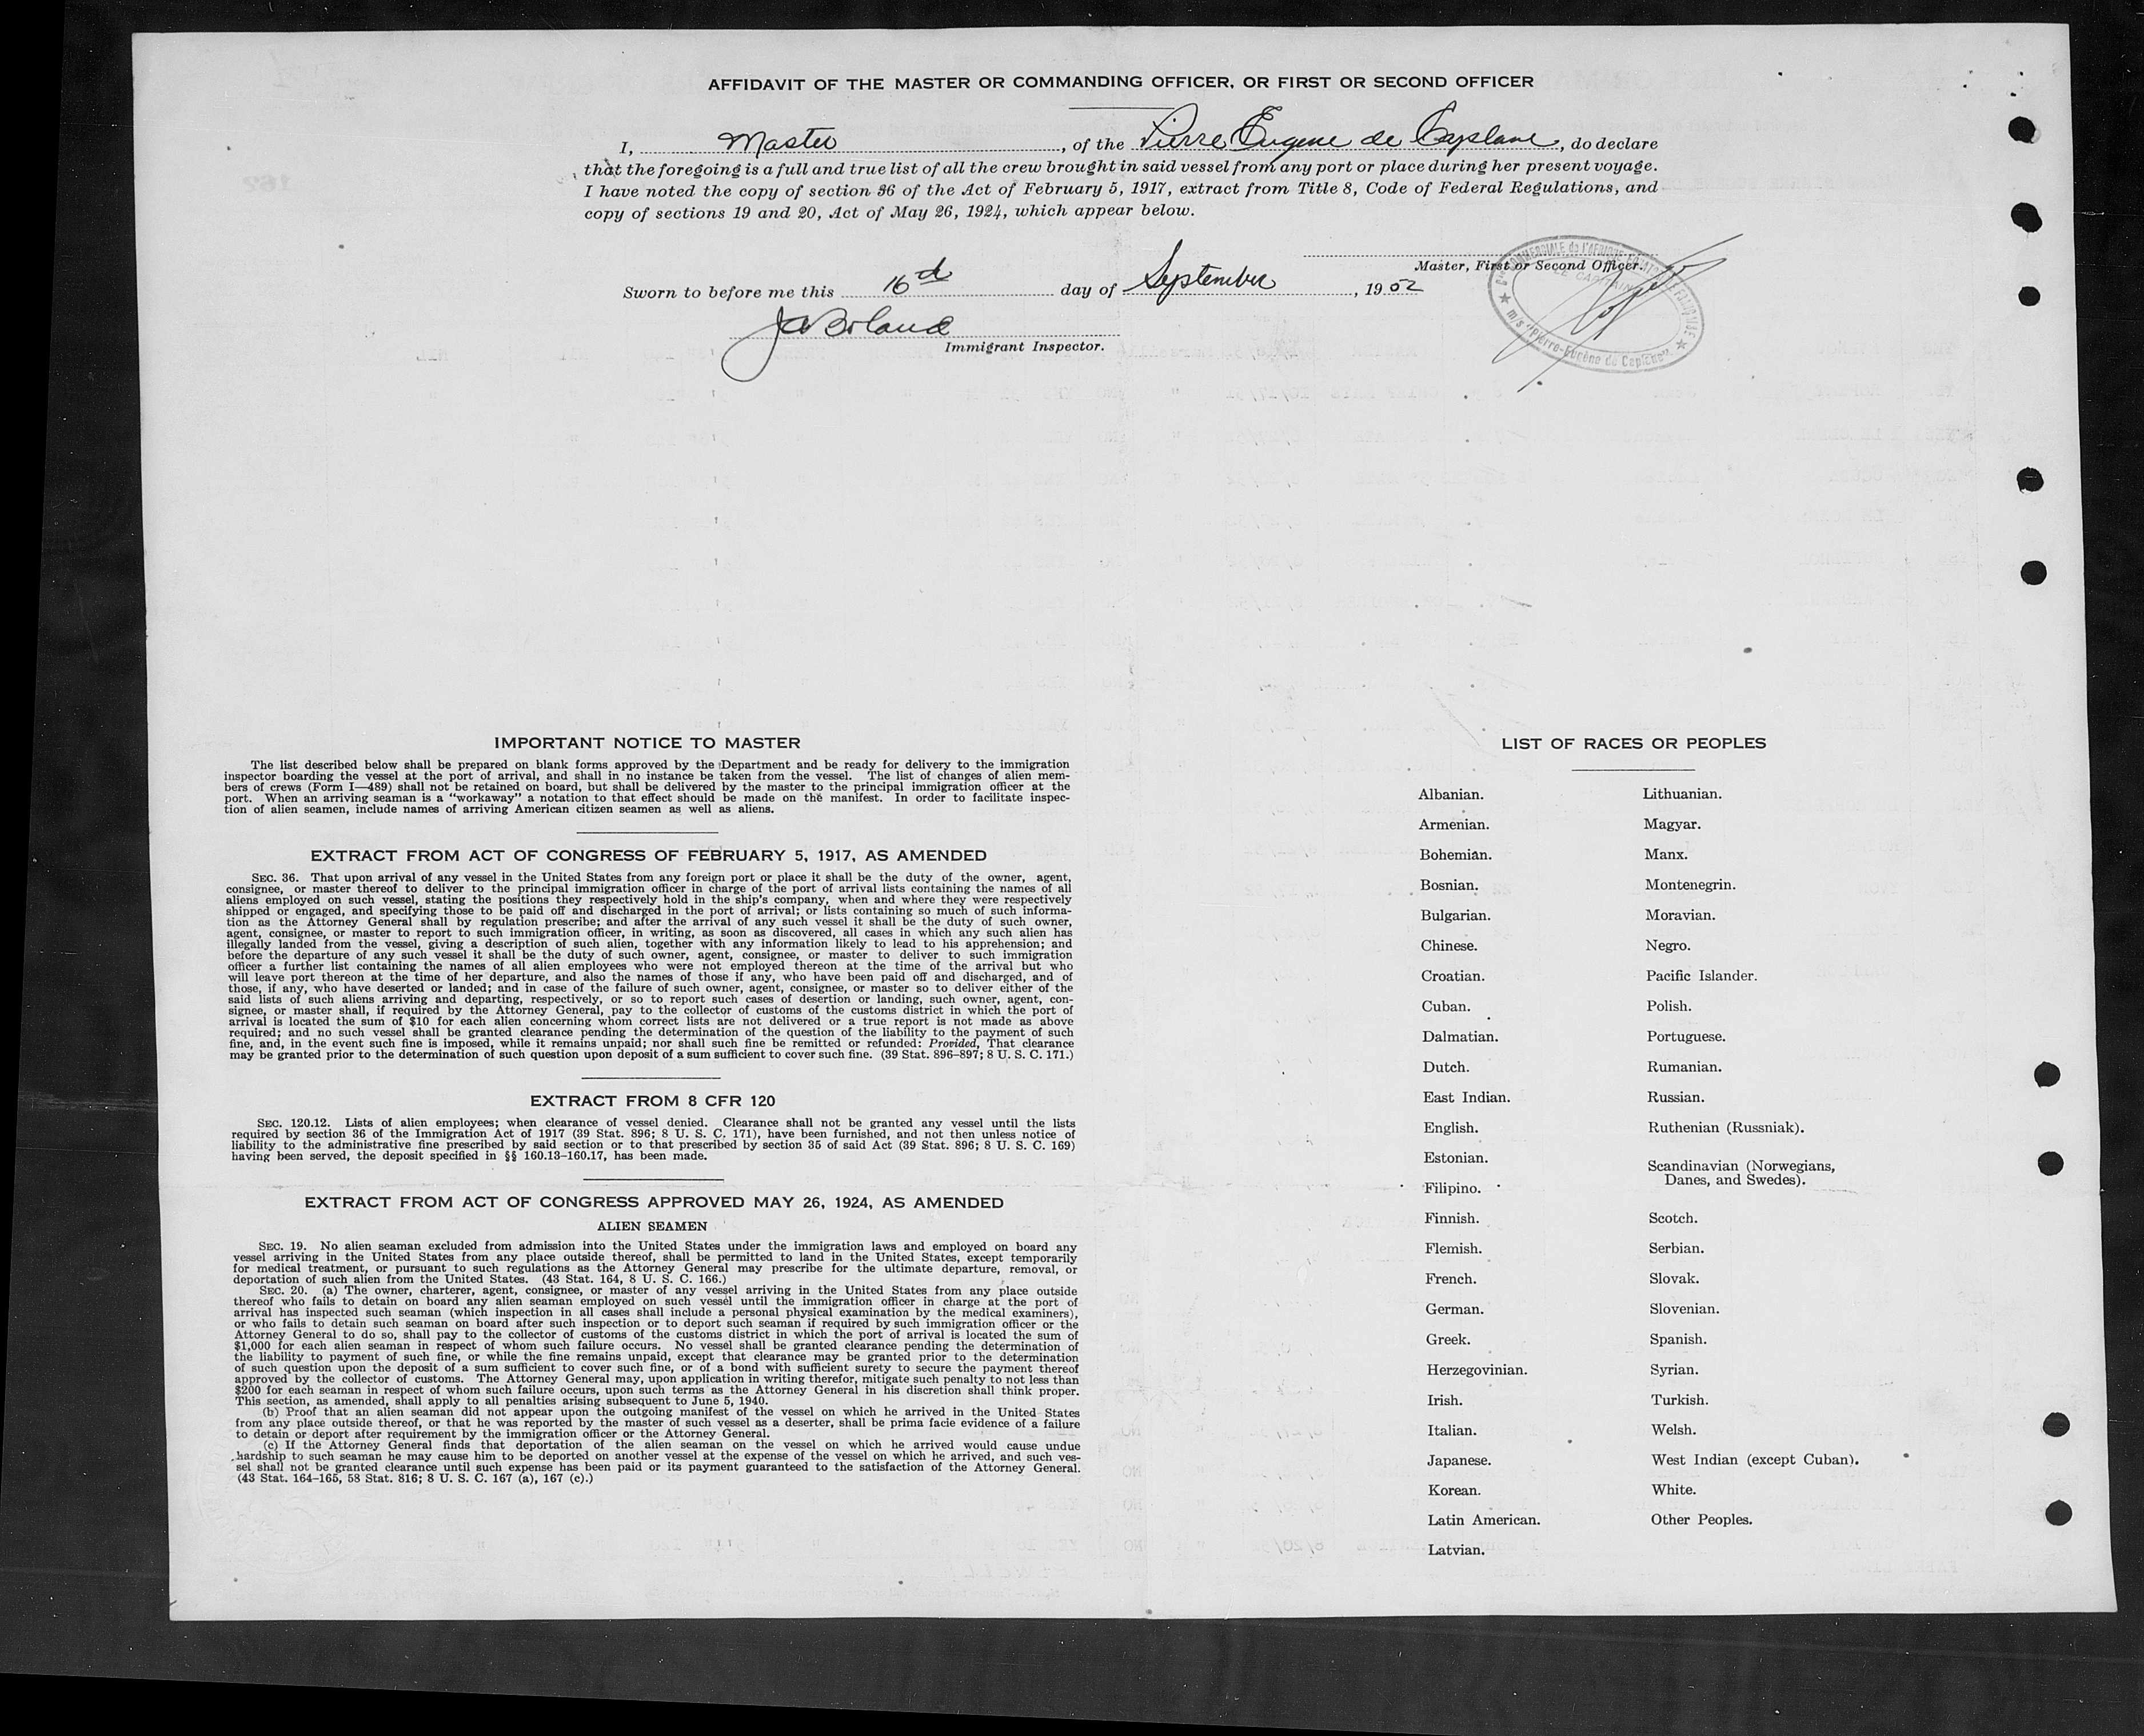 AFFIDAVIT OF THE MASTER OR COMMANDING OFFICER, OR FIRST OR SECOND OFFICER
I, Master, of the Pierre Eugene de Caplane, do declare
that the foregoing is a full and true list of all the crew brought in said vessel from any port or place during her present voyage.
I have noted the copy of section 36 of the Act of February 5, 1917, extract from Title 8, Code of Federal Regulations, and
copy of sections 19 and 20, Act of May 26, 1924, which appear below.
Master, First or Second Officer.
LE CAPITAINE
m/s "Pierre-Eugène de
Sworn to before me this 16th day of September, 1952
JA Boland
Immigrant Inspector.
IMPORTANT NOTICE TO MASTER
The list described below shall be prepared on blank forms approved by the Department and be ready for delivery to the immigration
inspector boarding the vessel at the port of arrival, and shall in no instance be taken from the vessel. The list of changes of alien mem-
bers of crews (Form I—489) shall not be retained on board, but shall be delivered by the master to the principal immigration officer at the
port. When an arriving seaman is a "workaway" a notation to that effect should be made on the manifest. In order to facilitate inspec-
tion of alien seamen, include names of arriving American citizen seamen as well as aliens.
EXTRACT FROM ACT OF CONGRESS OF FEBRUARY 5, 1917, AS AMENDED
SEC. 36. That upon arrival of any vessel in the United States from any foreign port or place it shall be the duty of the owner, agent,
consignee, or master thereof to deliver to the principal immigration officer in charge of the port of arrival lists containing the names of all
aliens employed on such vessel, stating the positions they respectively hold in the ship's company, when and where they were respectively
shipped or engaged, and specifying those to be paid off and discharged in the port of arrival; or lists containing so much of such informa-
tion as the Attorney General shall by regulation prescribe; and after the arrival of any such vessel it shall be the duty of such owner,
agent, consignee, or master to report to such immigration officer, in writing, as soon as discovered, all cases in which any such alien has
illegally landed from the vessel, giving a description of such alien, together with any information likely to lead to his apprehension; and
before the departure of any such vessel it shall be the duty of such owner, agent, consignee, or master to deliver to such immigration
officer a further list containing the names of all alien employees who were not employed thereon at the time of the arrival but who
will leave port thereon at the time of her departure, and also the names of those if any, who have been paid off and discharged, and of
those, if any, who have deserted or landed; and in case of the failure of such owner, agent, consignee, or master so to deliver either of the
said lists of such aliens arriving and departing, respectively, or so to report such cases of desertion or landing, such owner, agent, con-
signee, or master shall, if required by the Attorney General, pay to the collector of customs of the customs district in which the port of
arrival is located the sum of $10 for each alien concerning whom correct lists are not delivered or a true report is not made as above
required; and no such vessel shall be granted clearance pending the determination of the question of the liability to the payment of such
fine, and, in the event such fine is imposed, while it remains unpaid; nor shall such fine be remitted or refunded: Provided, That clearance
may be granted prior to the determination of such question upon deposit of a sum sufficient to cover such fine. (39 Stat. 896–897; 8 U. S. C. 171.)
EXTRACT FROM 8 CFR 120
SEC. 120.12. Lists of alien employees; when clearance of vessel denied. Clearance shall not be granted any vessel until the lists
required by section 36 of the Immigration Act of 1917 (39 Stat. 896; 8 U. S. C. 171), have been furnished, and not then unless notice of
liability to the administrative fine prescribed by said section or to that prescribed by section 35 of said Act (39 Stat. 896; 8 U. S. C. 169)
having been served, the deposit specified in §§ 160.13–160.17, has been made.
EXTRACT FROM ACT OF CONGRESS APPROVED MAY 26, 1924, AS AMENDED
ALIEN SEAMEN
SEC. 19. No alien seaman excluded from admission into the United States under the immigration laws and employed on board any
vessel arriving in the United States from any place outside thereof, shall be permitted to land in the United States, except temporarily
for medical treatment, or pursuant to such regulations as the Attorney General may prescribe for the ultimate departure, removal, or
deportation of such alien from the United States. (43 Stat. 164, 8 U. S. C. 166.)
SEC. 20. (a) The owner, charterer, agent, consignee, or master of any vessel arriving in the United States from any place outside
thereof who fails to detain on board any alien seaman employed on such vessel until the immigration officer in charge at the port of
arrival has inspected such seaman (which inspection in all cases shall include a personal physical examination by the medical examiners),
or who fails to detain such seaman on board after such inspection or to deport such seaman if required by such immigration officer or the
Attorney General to do so, shall pay to the collector of customs of the customs district in which the port of arrival is located the sum of
$1,000 for each alien seaman in respect of whom such failure occurs. No vessel shall be granted clearance pending the determination of
the liability to payment of such fine, or while the fine remains unpaid, except that clearance may be granted prior to the determination
of such question upon the deposit of a sum sufficient to cover such fine, or of a bond with sufficient surety to secure the payment thereof
approved by the collector of customs. The Attorney General may, upon application in writing therefor, mitigate such penalty to not less than
$200 for each seaman in respect of whom such failure occurs, upon such terms as the Attorney General in his discretion shall think proper.
This section, as amended, shall apply to all penalties arising subsequent to June 5, 1940.
(b) Proof that an alien seaman did not appear upon the outgoing manifest of the vessel on which he arrived in the United States
from any place outside thereof, or that he was reported by the master of such vessel as a deserter, shall be prima facie evidence of a failure
to detain or deport after requirement by the immigration officer or the Attorney General.
(c) If the Attorney General finds that deportation of the alien seaman on the vessel on which he arrived would cause undue
hardship to such seaman he may cause him to be deported on another vessel at the expense of the vessel on which he arrived, and such ves-
sel shall not be granted clearance until such expense has been paid or its payment guaranteed to the satisfaction of the Attorney General.
(43 Stat. 164–165, 58 Stat. 816; 8 U. S. C. 167 (a), 167 (c).)
LIST OF RACES OR PEOPLES
Albanian.
Armenian.
Bohemian.
Bosnian.
Bulgarian.
Chinese.
Croatian.
Cuban.
Dalmatian.
Dutch.
East Indian.
English.
Estonian.
Filipino.
Finnish.
Flemish.
French.
German.
Greek.
Herzegovinian.
Irish.
Italian.
Japanese.
Korean.
Latin American.
Latvian.
Lithuanian.
Magyar.
Manx.
Montenegrin.
Moravian.
Negro.
Pacific Islander.
Polish.
Portuguese.
Rumanian.
Russian.
Ruthenian (Russniak).
Scandinavian (Norwegians,
Danes, and Swedes).
Scotch.
Serbian.
Slovak.
Slovenian.
Spanish.
Syrian.
Turkish.
Welsh.
West Indian (except Cuban).
White.
Other Peoples.